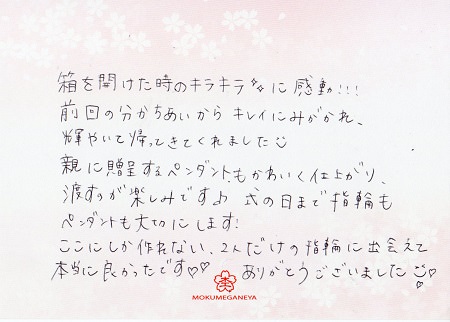 箱を開けた時のキラキラ✨に感動!!!
前回の分かちあいからキレイにみがかれ、
輝やいて帰ってきてくれました☺
親に贈呈するペンダントもかわいく仕上がり、
渡すのが楽しみですよ 式の日まで指輪も
ペンダントも大切にします!
ここにしか作れない、2人だけの指輪に出会えて
本当に良かったです♡♡ ありがとうございました☺♡
MOKUMEGANEYA